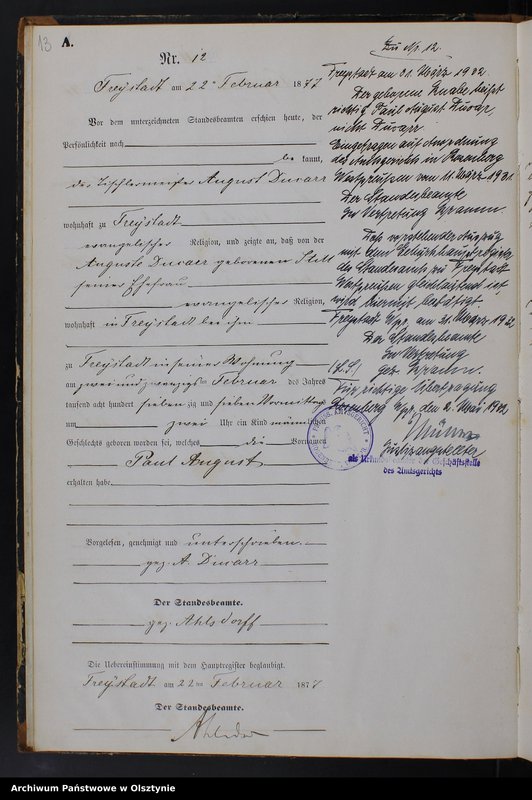 13
A.
Nr. 12
Freystadt am 22ten Februar 1877
Vor dem unterzeichneten Standesbeamten erschien heute, der
Persönlichkeit nach
be kannt,
der Tischlermeister August Duwarr
wohnhaft zu Freystadt
evangelischer Religion, und zeigte an, daß von der
Auguste Duwarr geborenen
seiner Ehefrau
evangelischer Religion,
wohnhaft in Freystadt bei ihm
zu Freystadt in seiner Wohnung
am zwei und zwanzigten Februar des Jahres
tausend acht hundert sieben zig und sieben Vormittags
um zwei Uhr ein Kind männlichen
Geschlechts geboren worden sei, welches die Vornamen
Paul August
erhalten habe
Vorgelesen, genehmigt und unterschrieben.
gez. A. Duwarr
Der Standesbeamte.
gez. Ahlsdorff
Die Uebereinstimmung mit dem Hauptregister beglaubigt.
Freystadt am 22ten Februar 1877
Der Standesbeamte.
Zu Nr. 12.
Freystadt am 31. März 1932.
Der geborene Knabe heißt
richtig Paul August Duwar,
nicht Duwarr
Eingetragen auf Anordnung
des Amtsgerichts in Rosenberg
Westpreußen vom 11. März 1931.
Der Standesbeamte
In Vertretung
Daß vorstehender Auszug
mit dem
des Standesamts zu Freystadt
Westpreußen gleichlautend ist
wird hiermit bestätigt.
Freystadt Wpr. am 31. März 1932
Der Standesbeamte
In Vertretung
(L.S.) gez.
Für richtige Übertragung
Rosenberg Wpr., den 2. Mai 1932
Justizangestellter
als Urkundsbeamter der Geschäftsstelle
des Amtsgerichts
Archiwum Państwowe w Olsztynie